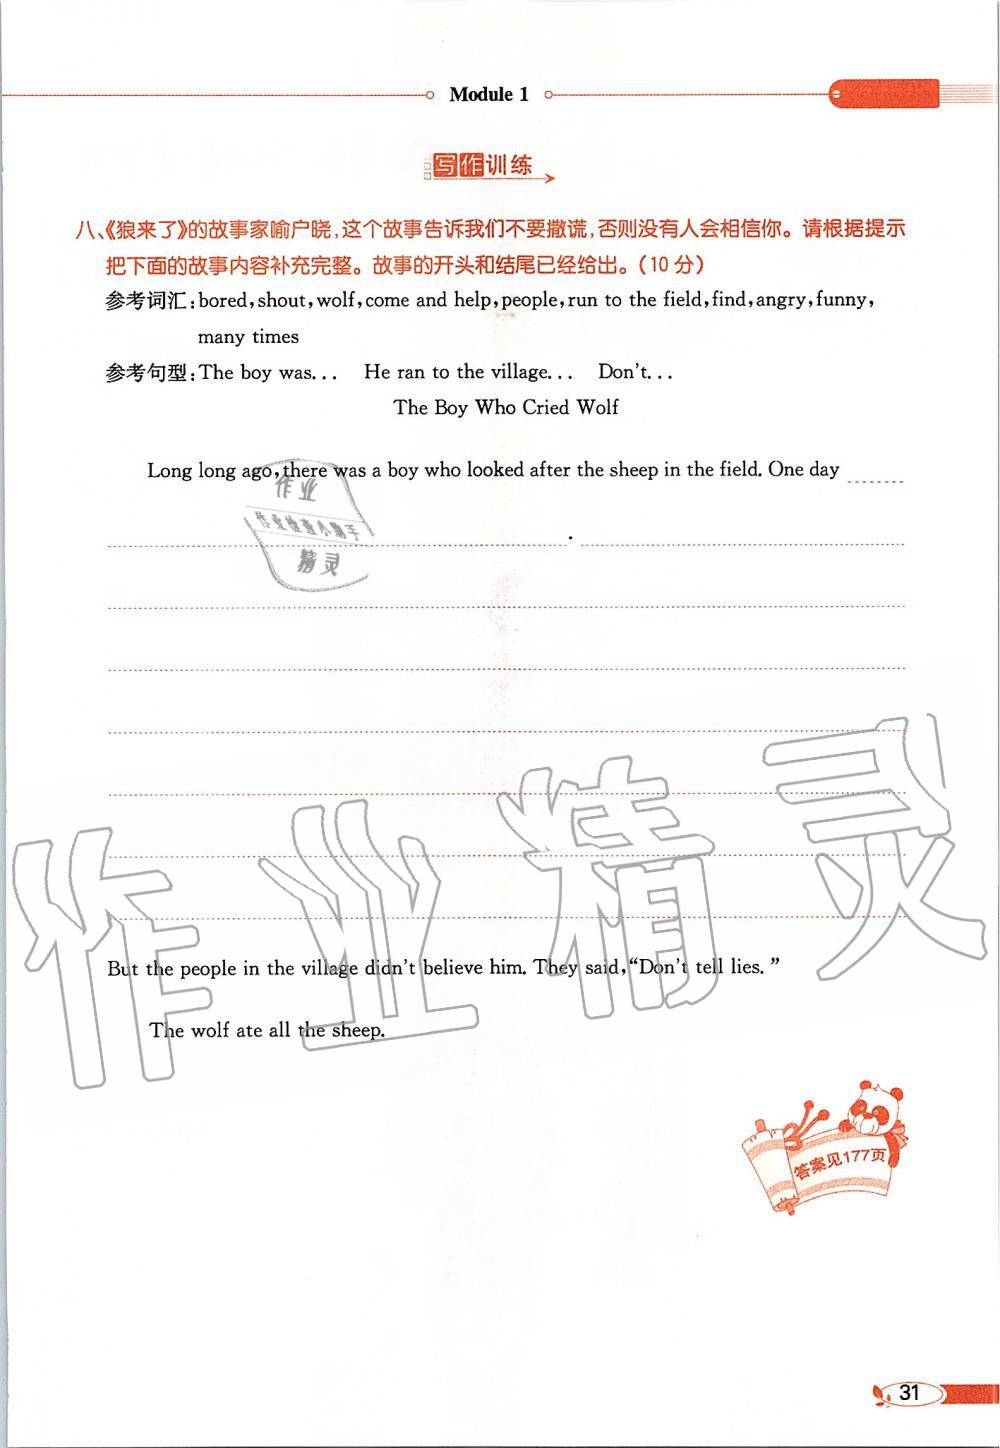 Module 1
写作训练
八、《狼来了》的故事家喻户晓,这个故事告诉我们不要撒谎,否则没有人会相信你。请根据提示
把下面的故事内容补充完整。故事的开头和结尾已经给出。(10 分)
参考词汇:bored,shout,wolf,come and help,people,run to the field,find,angry,funny,
many times
参考句型:The boy was... He ran to the village... Don't...
The Boy Who Cried Wolf
Long long ago,there was a boy who looked after the sheep in the field. One day
作业
作业检查小助手
精灵
.
作业精灵
But the people in the village didn't believe him. They said,“Don't tell lies.”
The wolf ate all the sheep.
答案见177页
31